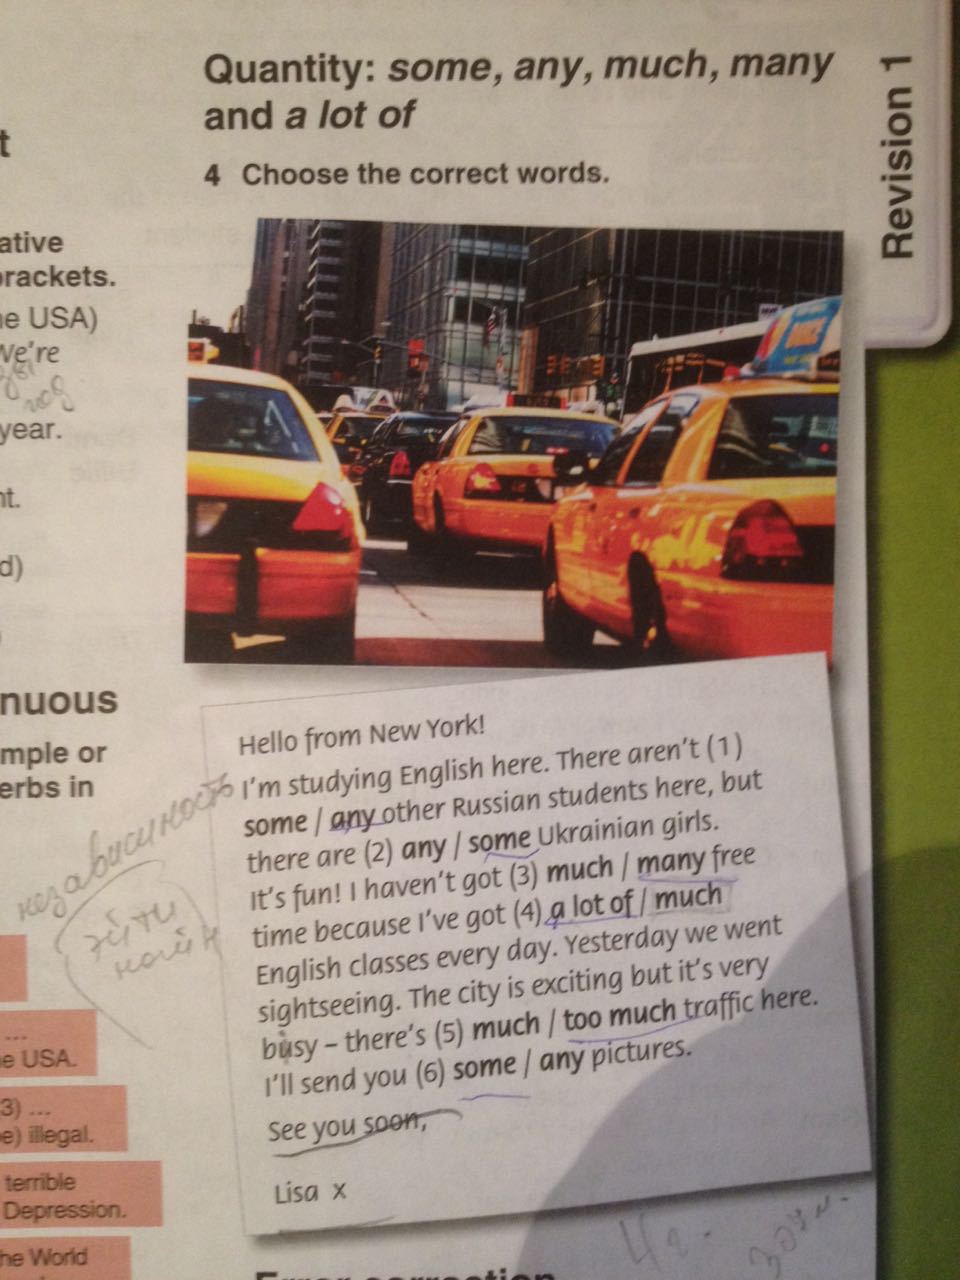 Quantity: some, any, much, many
and a lot of
Revision 1
4 Choose the correct words.
t
ative
brackets.
e USA)
we're
year.
nt.
d)
nuous
mple or
erbs in
...
e USA.
3) ...
e) illegal.
terrible
Depression.
he World
Hello from New York!
I'm studying English here. There aren't (1)
some / any other Russian students here, but
there are (2) any / some Ukrainian girls.
It's fun! I haven't got (3) much / many free
time because I've got (4) a lot of / much
English classes every day. Yesterday we went
sightseeing. The city is exciting but it's very
busy – there's (5) much / too much traffic here.
I'll send you (6) some / any pictures.
See you soon,
Lisa x
независимость
Error correction